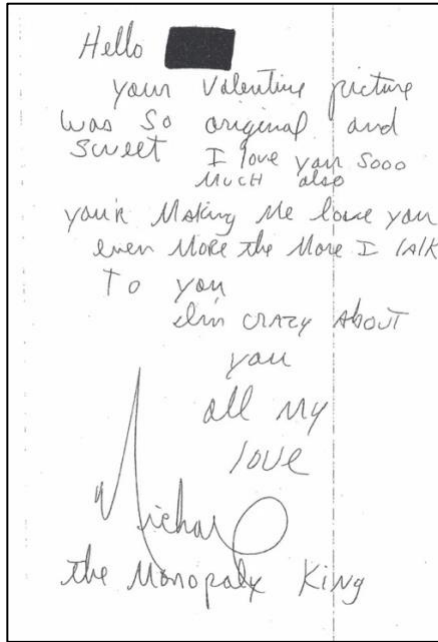 Hello
your Valentine picture
was so original and
sweet I love you sooo
much also
you'r Making Me love you
even More the More I talk
To you
I'm crazy About
you
all my
love
Michael
the Monopoly King